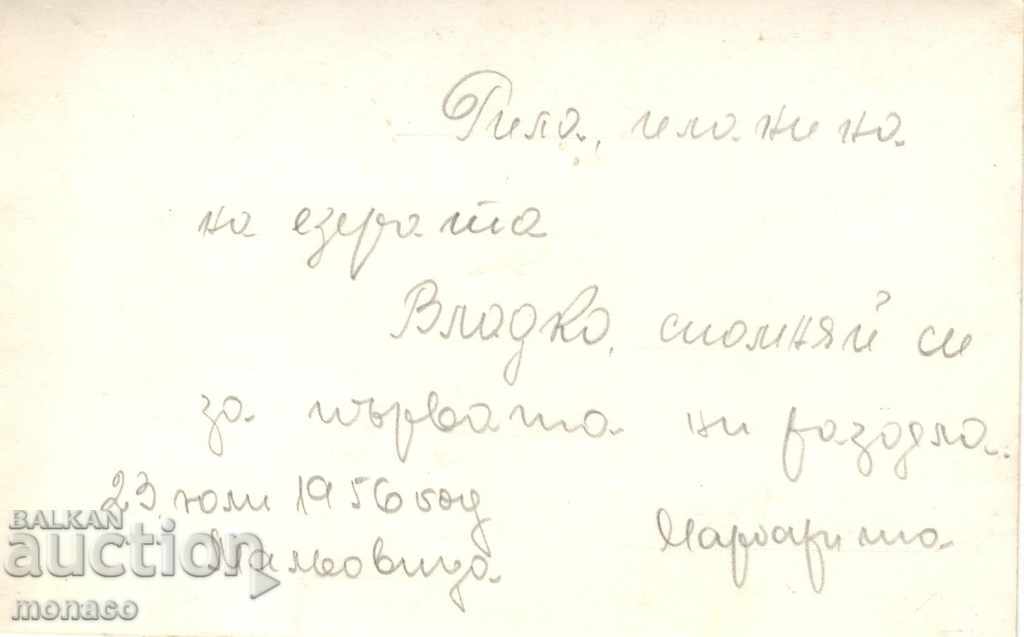 Рила, планина
на езерата
Владко, спомняй си
за първата ни раздяла.
23 юли 1956 год
Мальовица.
Маргарита
BALKAN
auction
monaco